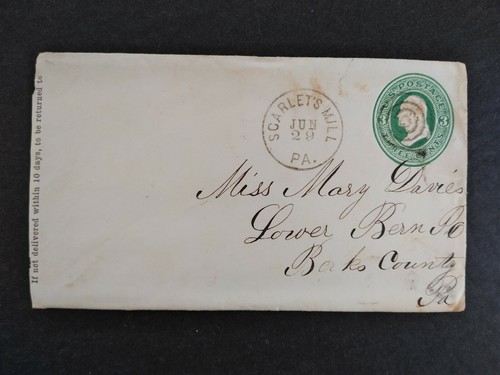 If not delivered within 10 days, to be returned to
SCARLET'S MILL
JUN
29
PA.
U.S. POSTAGE
3 3
THREE CENTS
Miss Mary Davies
Lower Bern PO
Berks County
Pa